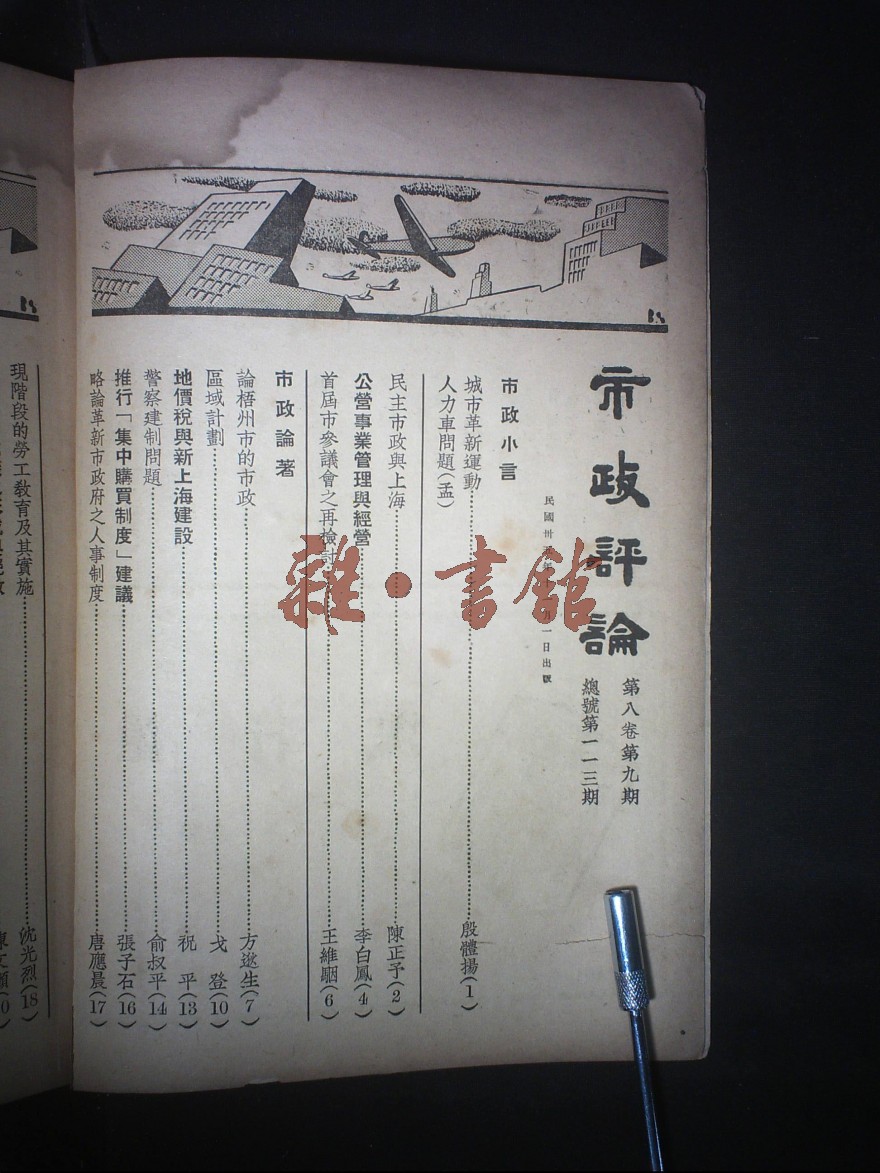 市政評論
第八卷第九期
總號第一一三期
民國卅
一日出版
市政小言
城市革新運動……殷體揚(1)
人力車問題(孟)
民主市政與上海……陳正予(2)
公營事業管理與經營……李白鳳(4)
首屆市參議會之再檢討……王維駰(6)
市政論著
論梧州市的市政……方逖生(7)
區域計劃……戈登(10)
地價稅與新上海建設……祝平(13)
警察建制問題……俞叔平(14)
推行「集中購買制度」建議……張子石(16)
略論革新市政府之人事制度……唐應晨(17)
現階段的勞工教育及其實施……沈光烈(18)
雜·書館